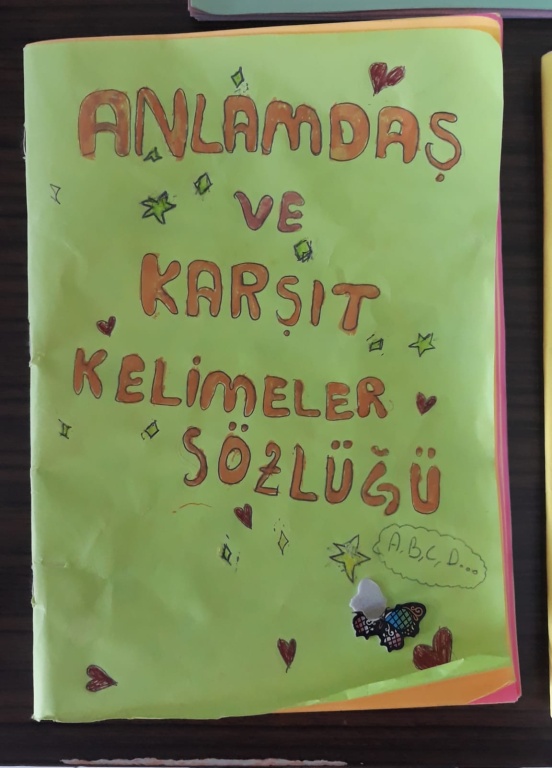 ANLAMDAŞ
VE
KARŞIT
KELİMELER
SÖZLÜĞÜ
A,B,C,D...